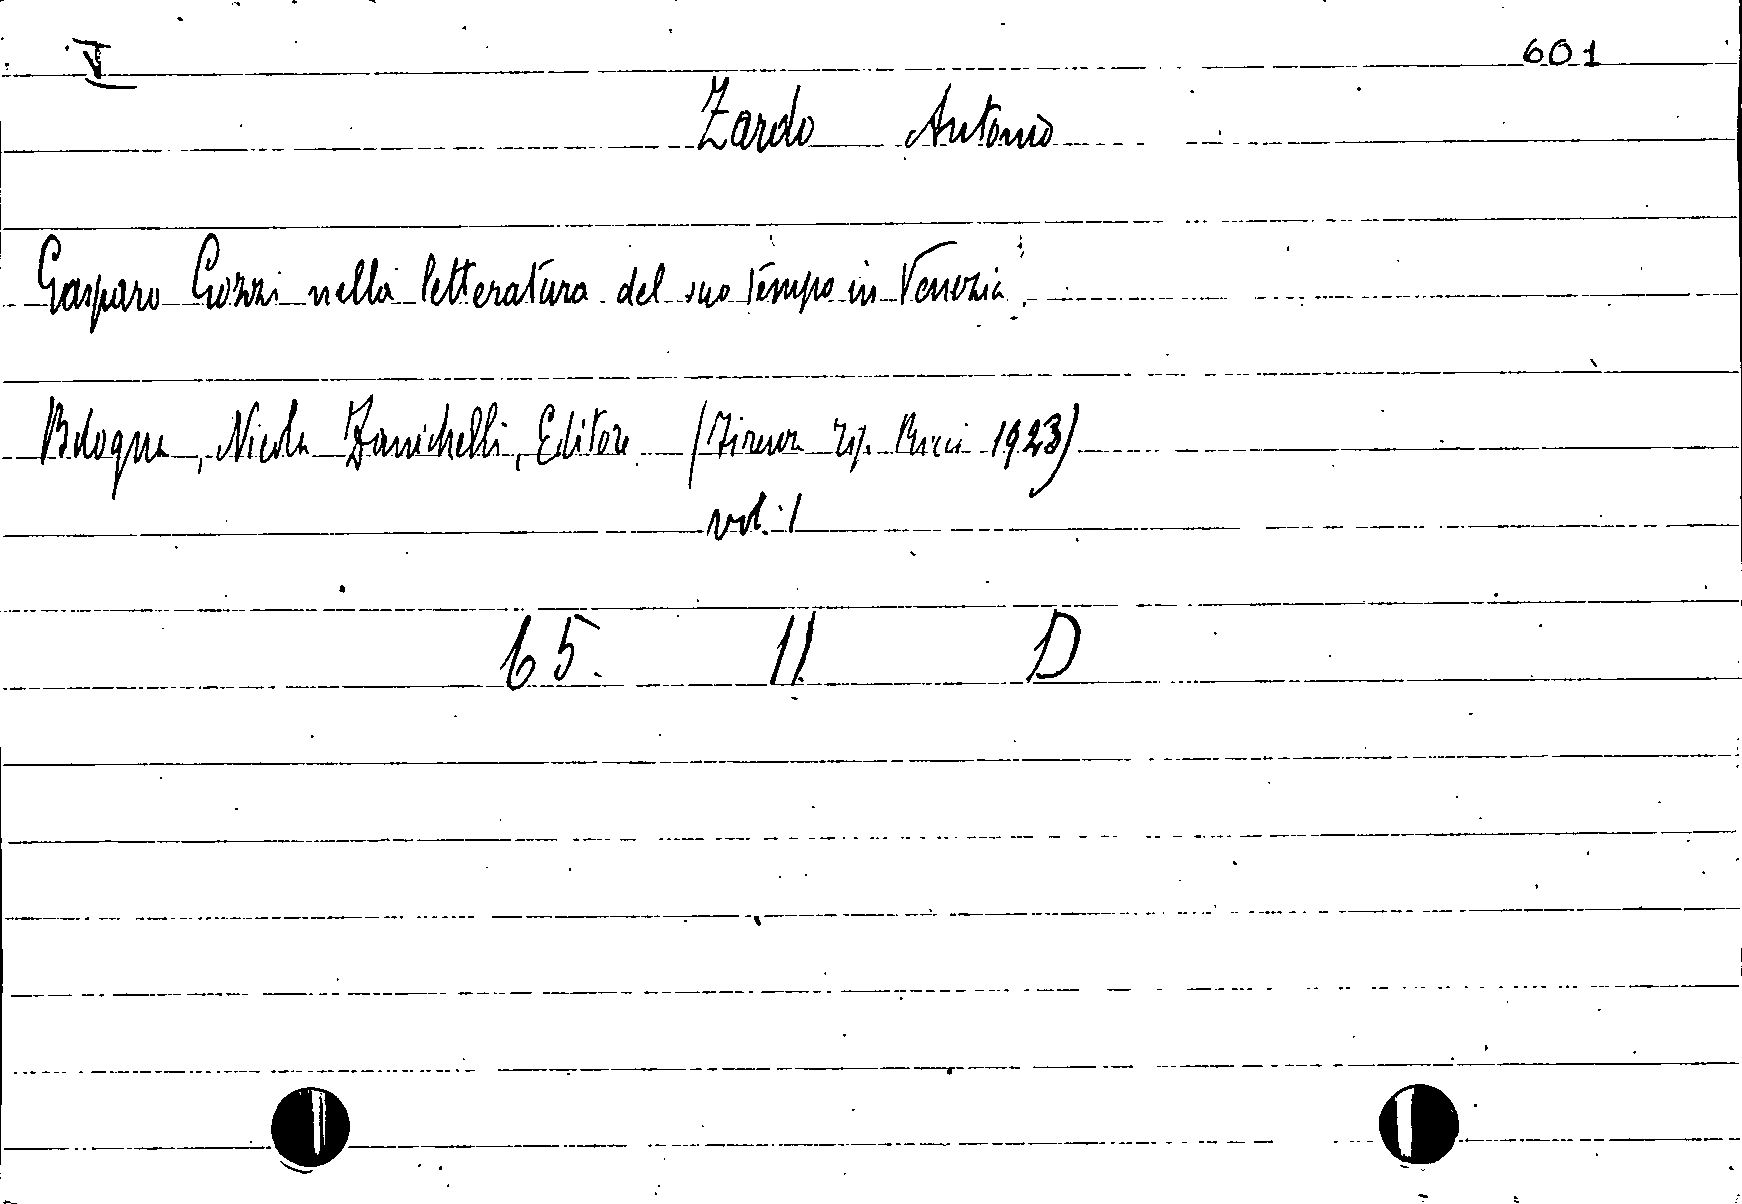 V 601
Zardo Antonio
Gasparo Gozzi nella letteratura del suo tempo in Venezia
Bologna, Nicola Zanichelli, Editore (Firenze Tip. Ricci 1923)
vol. 1
65. 11. D